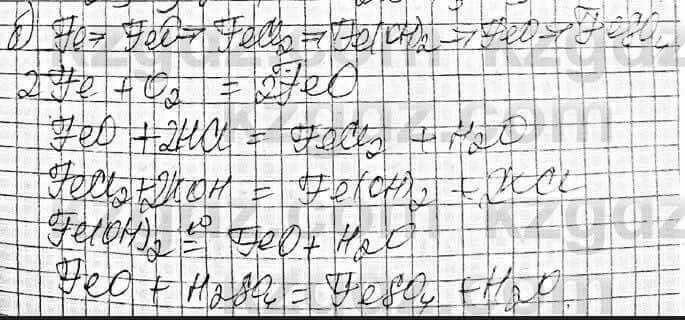 б) Fe → FeO → FeCl₂ → Fe(OH)₂ → FeO → FeSO₄
2Fe + O₂ = 2FeO
FeO + 2HCl = FeCl₂ + H₂O
FeCl₂ + 2KOH = Fe(OH)₂ + 2KCl
Fe(OH)₂ t°= FeO + H₂O
FeO + H₂SO₄ = FeSO₄ + H₂O.